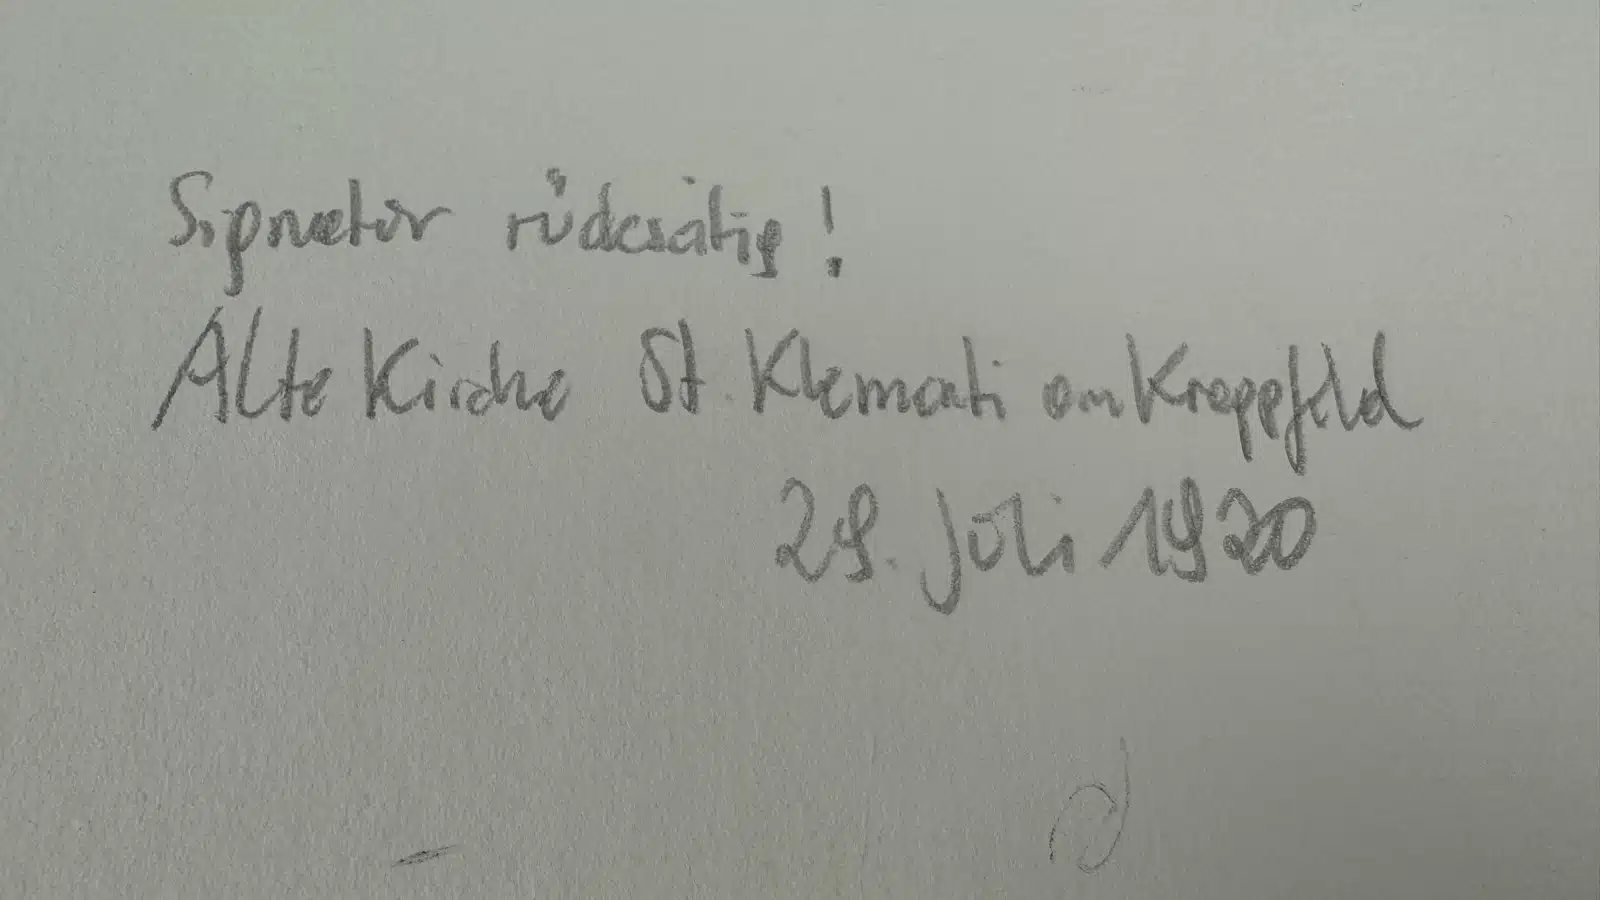 Signatur rücksätig!
Alte Kirche St. Klementi am Krappfeld
29. Juli 1920